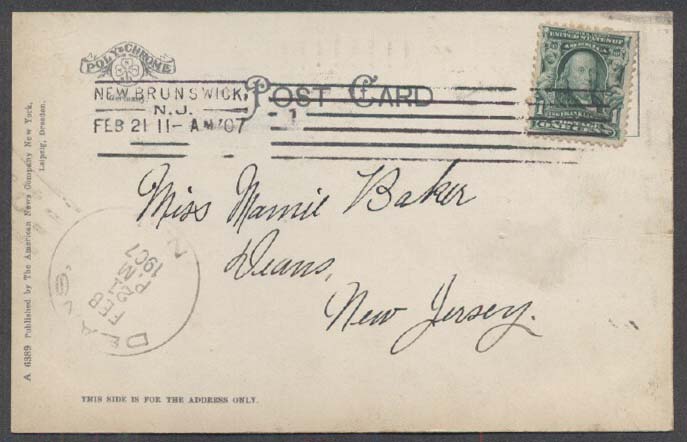 POLY-CHROME
NEW BRUNSWICK,
N.J.
FEB 21 11-AM '07
POST CARD
1
UNITED STATES OF
AMERICA
1 1
ONE CENT
Miss Mamie Baker
Deans,
New Jersey.
FEB
21
P.M
1907
A 6389 Published by The American News Company New York,
Leipzig, Dresden.
THIS SIDE IS FOR THE ADDRESS ONLY.